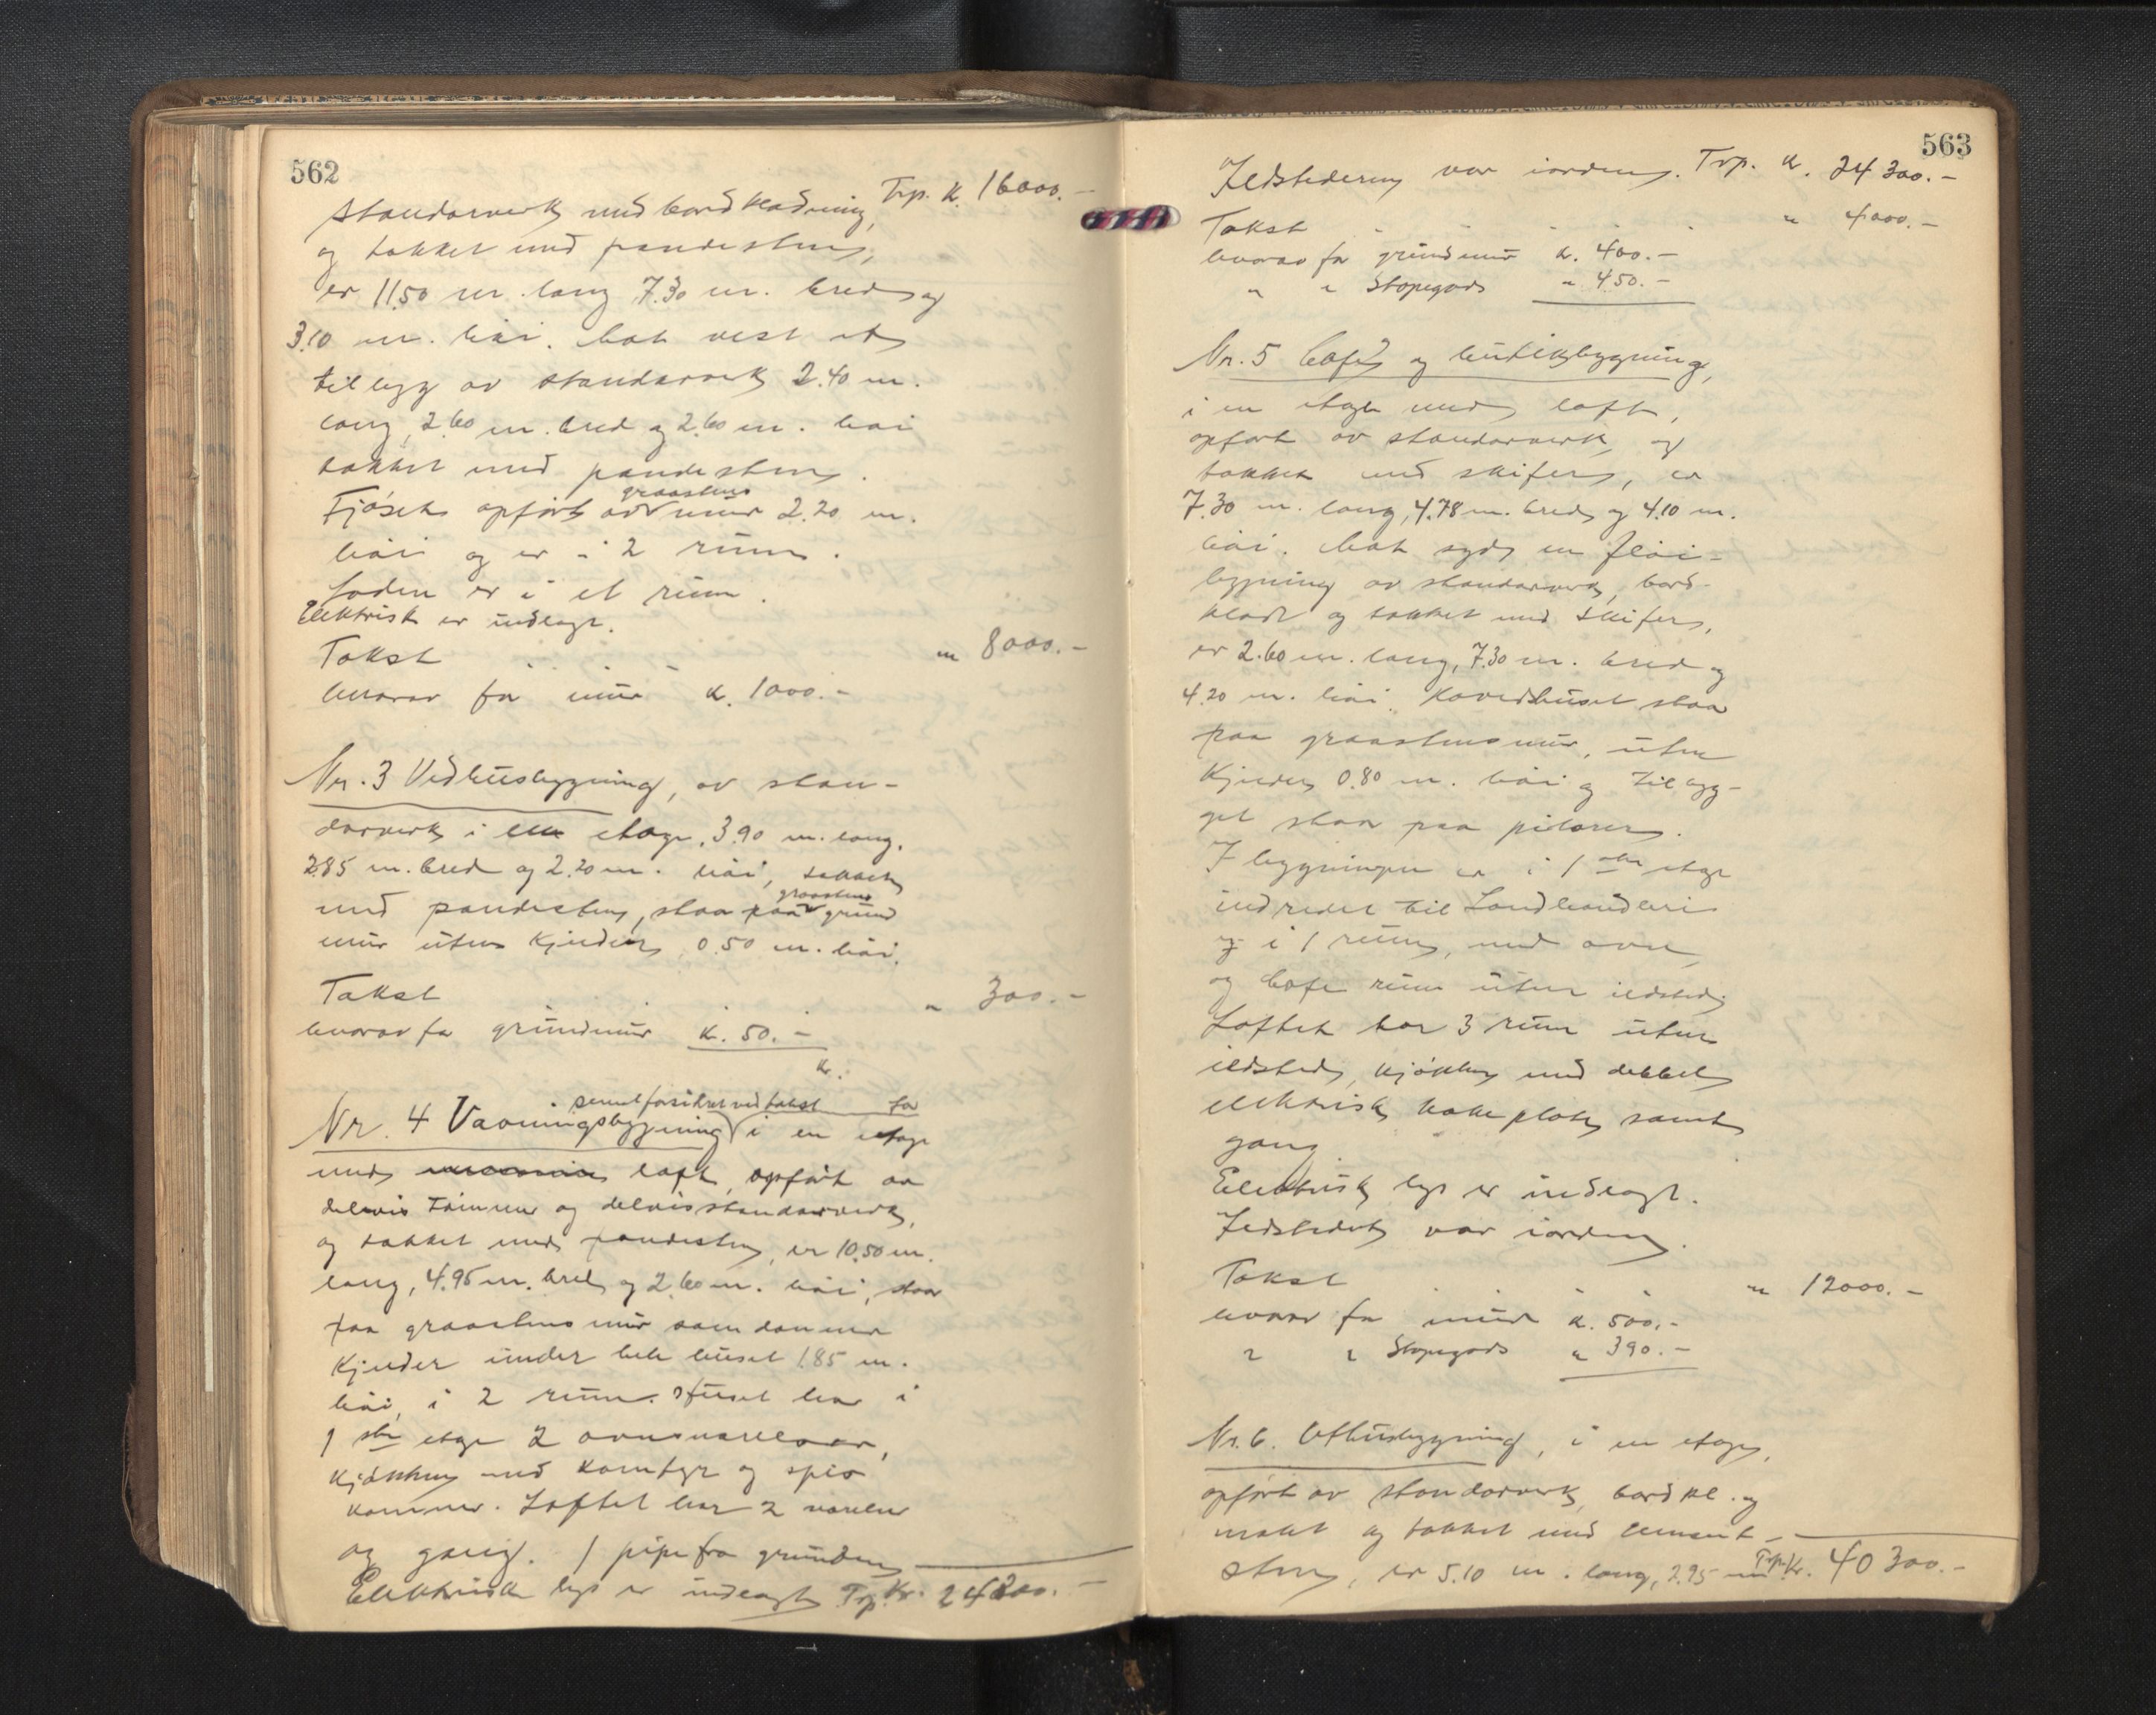 562
Trp. kr. 16000.-
standarverk med bordklædning,
og tækket med pandesten,
er 11.50 m. lang 7.30 m. bred og
3.10 m. høi. Mot vest et
tilbygg av standarverk 2.40 m.
lang, 2.60 m. bred og 2.60 m. høi
tækket med pandesten.
graastens
Fjøset opført av mur 2.20 m.
høi og er i 2 rum.
Løden er i et rum.
Elektrisk er indlagt.
Takst " 8000.-
hvorav for mur kr. 1000.-
Nr. 3 Vedhusbygning, av stan-
darverk i en etage, 3.90 m. lang,
2.85 m. bred og 2.20 m. høi, tækket
graastens
med pandesten, staar paa grund
mur uten kjelder 0.50 m. høi.
Takst " 300.-
hvorav for grundmur kr. 50.-
kr.
samt forsikret ved takst for
Nr. 4 Vaaningsbygning i en etage
med loft, opført av
delvis tømmer og delvis standarverk,
og tækket med pandesten, er 10.50 m.
lang, 4.95 m. bred og 2.60 m. høi, staar
paa graastens mur som danner
kjelder under hele huset 1.85 m.
høi, i 2 rum. Huset har i
1 ste etage 2 ovnsværelser,
kjøkken med komfyr og spis
kammer. Loftet har 2 værelser
og gang. 1 pipe fra grunden
Elektrisk lys er indlagt Trp. Kr. 24300.-
563
Ildstederne var iorden. Trp. kr. 24300.-
Takst " 4000.-
hvorav for grundmur kr. 400.-
" " Støpegods " 450.-
Nr. 5 Cafe og butikbygning,
i en etage med loft,
opført av standarverk og
tækket med skifer, er
7.30 m. lang, 4.78 m. bred og 4.10 m.
høi. Mot syd en fløi-
bygning av standarverk, bord-
klædt og tækket med skifer,
er 2.60 m. lang, 7.30 m. bred og
4.20 m. høi. Hovedhuset staar
paa graastensmur, uten
kjelder 0.80 m. høi og tilbyg-
get staar paa pilarer.
I bygningen er i 1 ste etage
indredet til Landhandleri
og i 1 rum, med ovn,
og Cafe rum uten ildsted,
Loftet har 3 rum uten
ildsted, kjøkken med dobbelt
elektrisk kokeplate samt
gang.
Elektrisk lys er indlagt.
Ildstedet var iorden.
Takst " 12000.-
hvorav for mur kr. 500.-
" " Støpegods " 390.-
Nr. 6. Uthusbygning, i en etage,
opført av standarverk, bordkl. og
malt og tækket med cement-
sten, er 5.10 m. lang, 2.95 m Trp. Kr. 40300.-